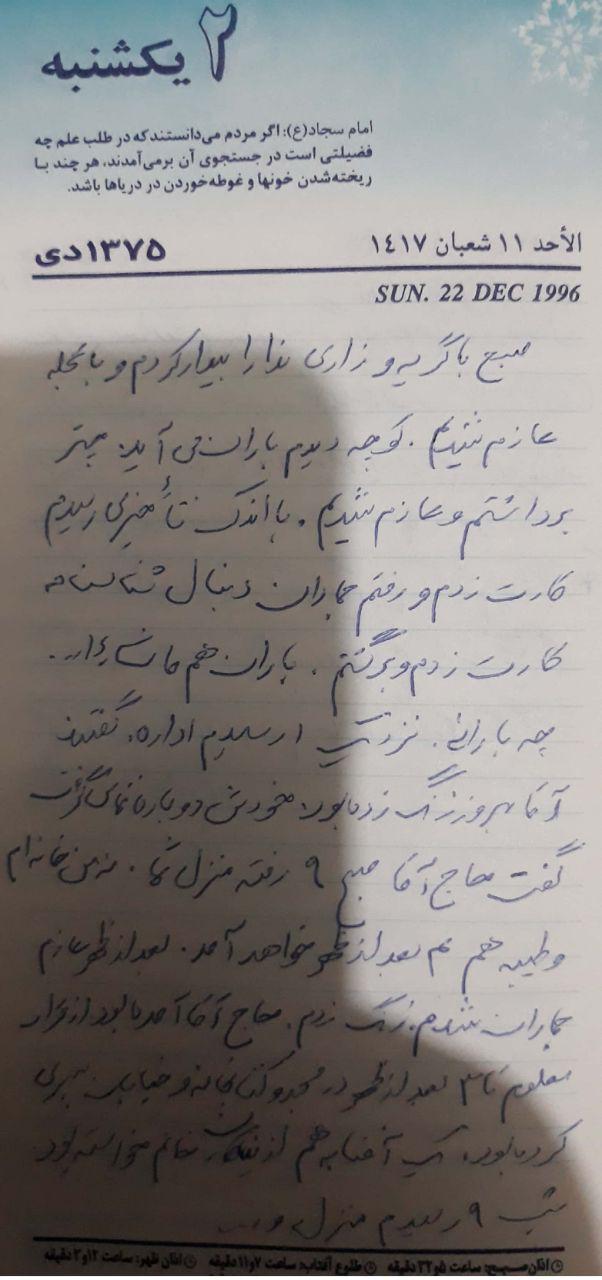 ۲ یکشنبه
امام سجاد(ع): اگر مردم می‌دانستند که در طلب علم چه
فضیلتی است در جستجوی آن برمی‌آمدند، هر چند با
ریخته‌شدن خونها و غوطه‌خوردن در دریاها باشد.
الأحد ۱۱ شعبان ۱٤۱۷
۱۳۷۵ دی
SUN. 22 DEC 1996
صبح با گریه و زاری ندا را بیدار کردم و با عجله
عازم شدیم. کوچه دیدم باران می‌آید. چتر
برداشتم و عازم شدیم. با اندک تأخیری رسیدم
کارت زدم و رفتم جماران دنبال شناسنامه
کارت زدم و برگشتم. باران هم
چه بارانی. رسیدم اداره. گفتند
آقا بهروز زنگ زده بود. خودش دوباره تماس گرفت
گفت حاج آقا صبح ۹ رفته منزل شما. من خانه‌ام
و طیبه هم بعد از ظهر خواهد آمد. بعد از ظهر عازم
جماران شدم. زنگ زدم. حاج آقا آمده بود از قرار
معلوم تا ۳ بعد از ظهر در مسجد و کتابخانه و خیابان سپری
کرده بود. یک آفتابه هم از خانم خواسته بود
شب ۹ رسیدم منزل و ...
اذان صبح: ساعت ۵و۴۲ دقیقه طلوع آفتاب: ساعت ۷و۱۱ دقیقه اذان ظهر: ساعت ۱۲و۳ دقیقه